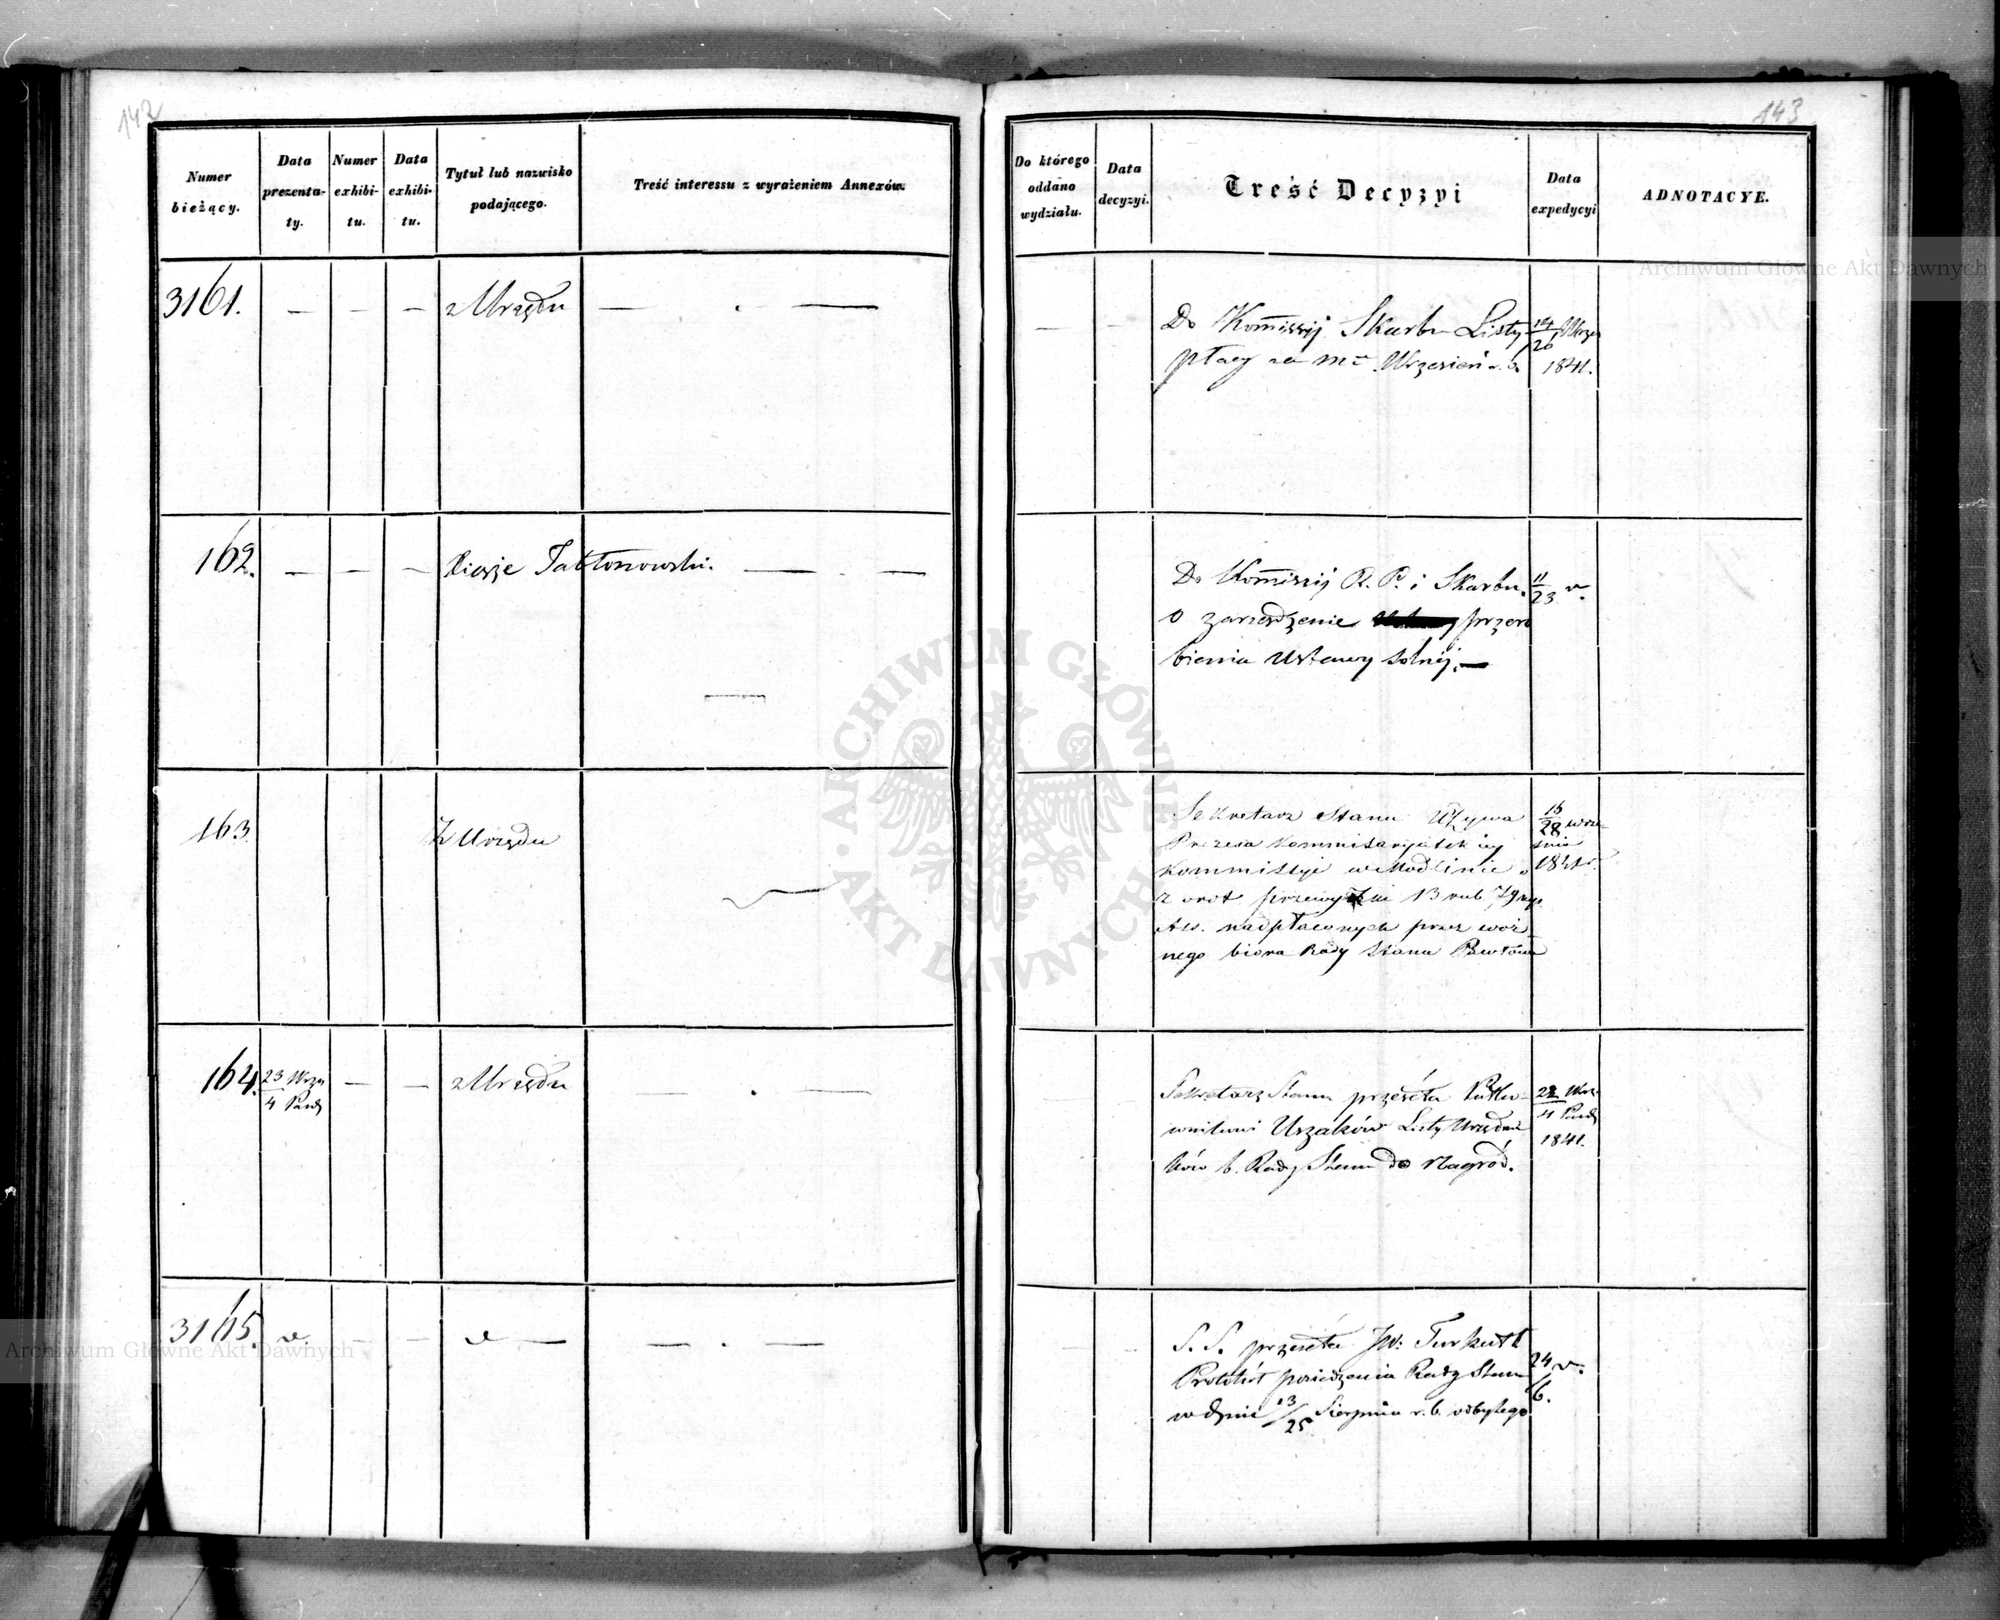 142
Numer
bieżący.
Data
prezenta-
ty.
Numer
exhibi-
tu.
Data
exhibi-
tu.
Tytuł lub nazwisko
podającego.
Treść interessu z wyrażeniem Annexów.
3161.
z Urzędu
162.
Xiąże Jabłonowski.
163.
Z Urzędu
164.
23 Wrze
4 Paźd
z Urzędu
3165.
143
Do którego
oddano
wydziału.
Data
decyzyi.
Treść Decyzyi
Data
expedycyi
ADNOTACYE.
Do Kommissyj Skarbu Listy
płacy za mc Wrzesień r. b.
14/26 Wrze
1841.
Do Kommissyj R. P. i Skarbu.
o zarządzenie przero
bienia Ustawy solnéj.
11/23 v.
Sekretarz Stanu Używa
Prezesa
Kommissyi w Modlinie o
zwrot przewyżki 13 rub 79
nadpłaconych przez woź
nego biora Rady Stanu Pawłowa
16/28 wrze
śnia
1841 r.
Sekretarz Stanu przeseła Pułko-
wnikowi Uszaków Listy Urzędni
ków b. Rady Stanu do Nagród.
22 Wrz
4 Paźd
1841.
S. S. przeseła JW: Turkułł
Protokół posiedzenia Rady Stanu
w dniu 13/25 Sierpnia r. b. odbytego
24/6. v.
ARCHIWUM GŁÓWNE AKT DAWNYCH
Archiwum Główne Akt Dawnych
Archiwum Główne Akt Dawnych